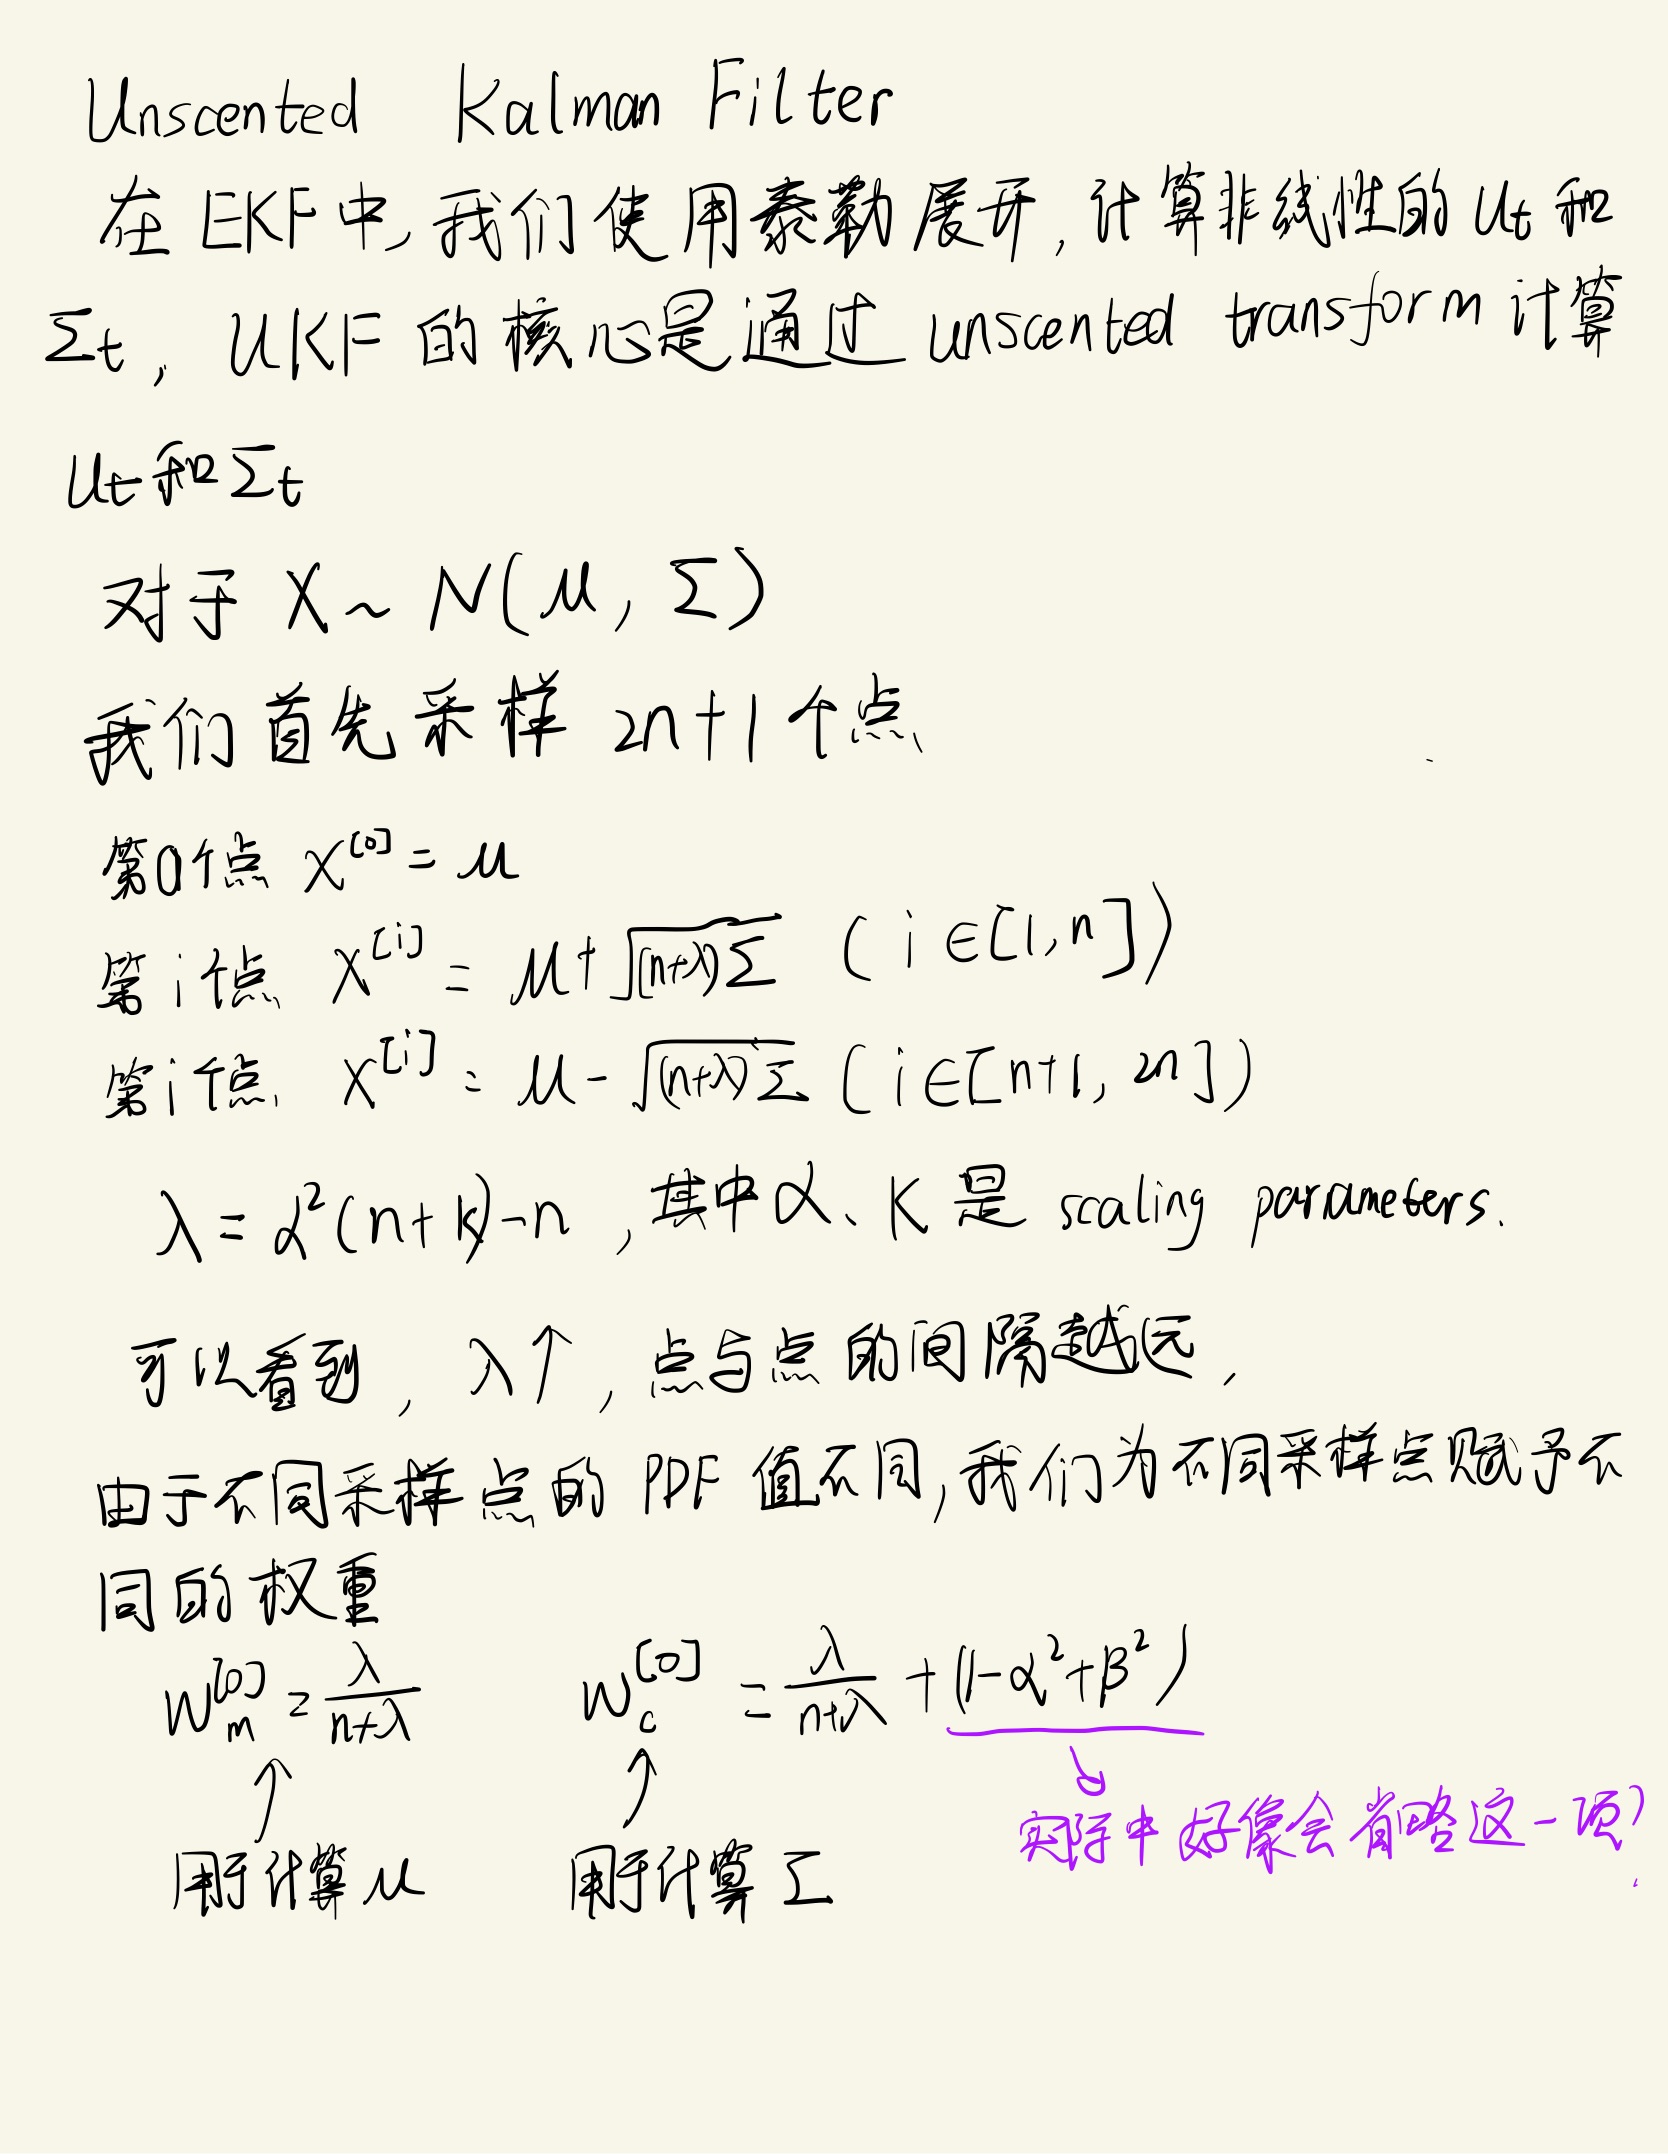 Unscented Kalman Filter
在EKF中,我们使用泰勒展开,计算非线性的 Ut 和
Σt, UKF的核心是通过 unscented transform 计算
Ut和Σt
对于 X ~ N(μ, Σ)
我们首先采样 2n+1个点
第0个点 X^[0] = μ
第i个点 X^[i] = μ + √((n+λ)Σ) (i∈[1,n])
第i个点 X^[i] = μ - √((n+λ)Σ) (i∈[n+1, 2n])
λ = α²(n+k)-n ,其中α、K是 scaling parameters.
可以看到, λ↑, 点与点的间隔越远,
由于不同采样点的 PDF 值不同,我们为不同采样点赋予不
同的权重
W_m^[0] = λ/(n+λ) W_c^[0] = λ/(n+λ) + (1-α²+β²)
实际中好像会省略这一项?
用于计算μ 用于计算Σ